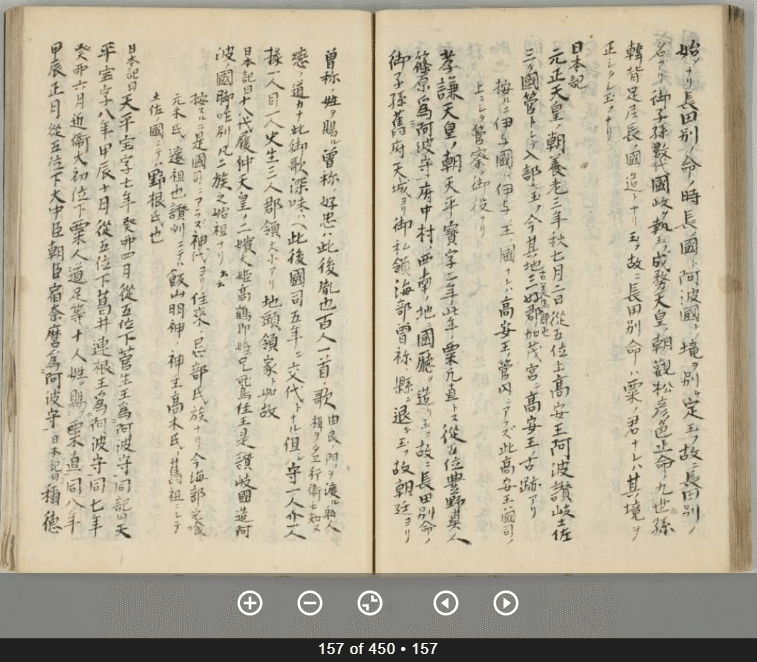 始ナリ長田別ノ命ノ時長ノ國ト阿波國ノ境ヲ別ケ定玉フ故ニ長田別ノ
名アリ御子孫數代國政ヲ執玉フ成務天皇ノ朝觀松彦色止命ノ九世孫
韓背足居長ノ國ノ造トナリ玉フ故ニ長田別命ハ粟ノ君ナレハ其ノ境ヲ
正シクシ玉フナリ
日本記
元正天皇ノ朝養老三年秋七月二日從五位上高安王阿波讃岐土佐
三ケ國管トシテ入部シ玉フ今其地三好郡加茂宮ニ高安王ノ古跡アリ
按ルニ伊与國ハ伊与ノ王國ナレハ高安王ノ管内ニアラズ此高安王ハ國司ノ
上ニシテ管察ノ御役ナリ
孝謙天皇ノ朝天平寶字二年此年粟凡直トス從五位豊野真人
篠原爲阿波守府中村ノ西南ノ地ニ國廳ヲ造リ玉フ故ニ長田別命ノ
御子孫舊府天城ヨリ御私領海部ノ曽祢ノ縣ニ退キ玉フ故朝廷ヨリ
曽祢ノ姓ヲ賜ル曽祢ノ好忠ハ此後胤也百人一首ノ歌
由良ノ門ヲ渡ル舟人
楫ヲタエ行衛モ知ヌ
恋ノ道カナ此御歌深味ハヘ此後國司五年ニ六交代トナル但シ守一人介一人
掾一人目一人史生三人郡領大小アリ地頭領家ト如故
日本記曰十八代履仲天皇ノ二嬪
讃岐國造阿
波國脚咋別凡二族之始祖ナリ云云
按ルニ是國司ニアラズ神代ヨリ住來ノ忌部氏族ナリ今海部宍喰
元木氏ノ遠祖也讃州ニテハ飯山明神ノ神主高木氏ノ舊祖ニシテ
土佐國ニテハ野根氏也
日本記曰天平宝字七年癸卯四月從五位下菅生王爲阿波守同記曰天
平宝字八年甲辰十月從五位下葛井連根主爲阿波守同七年
癸卯六月近衛大初位下粟人道足等十人姓ヲ賜フ粟直同八年
甲辰正月從五位下大中臣朝臣宿奈麿爲阿波守日本記曰稱德
157 of 450 • 157